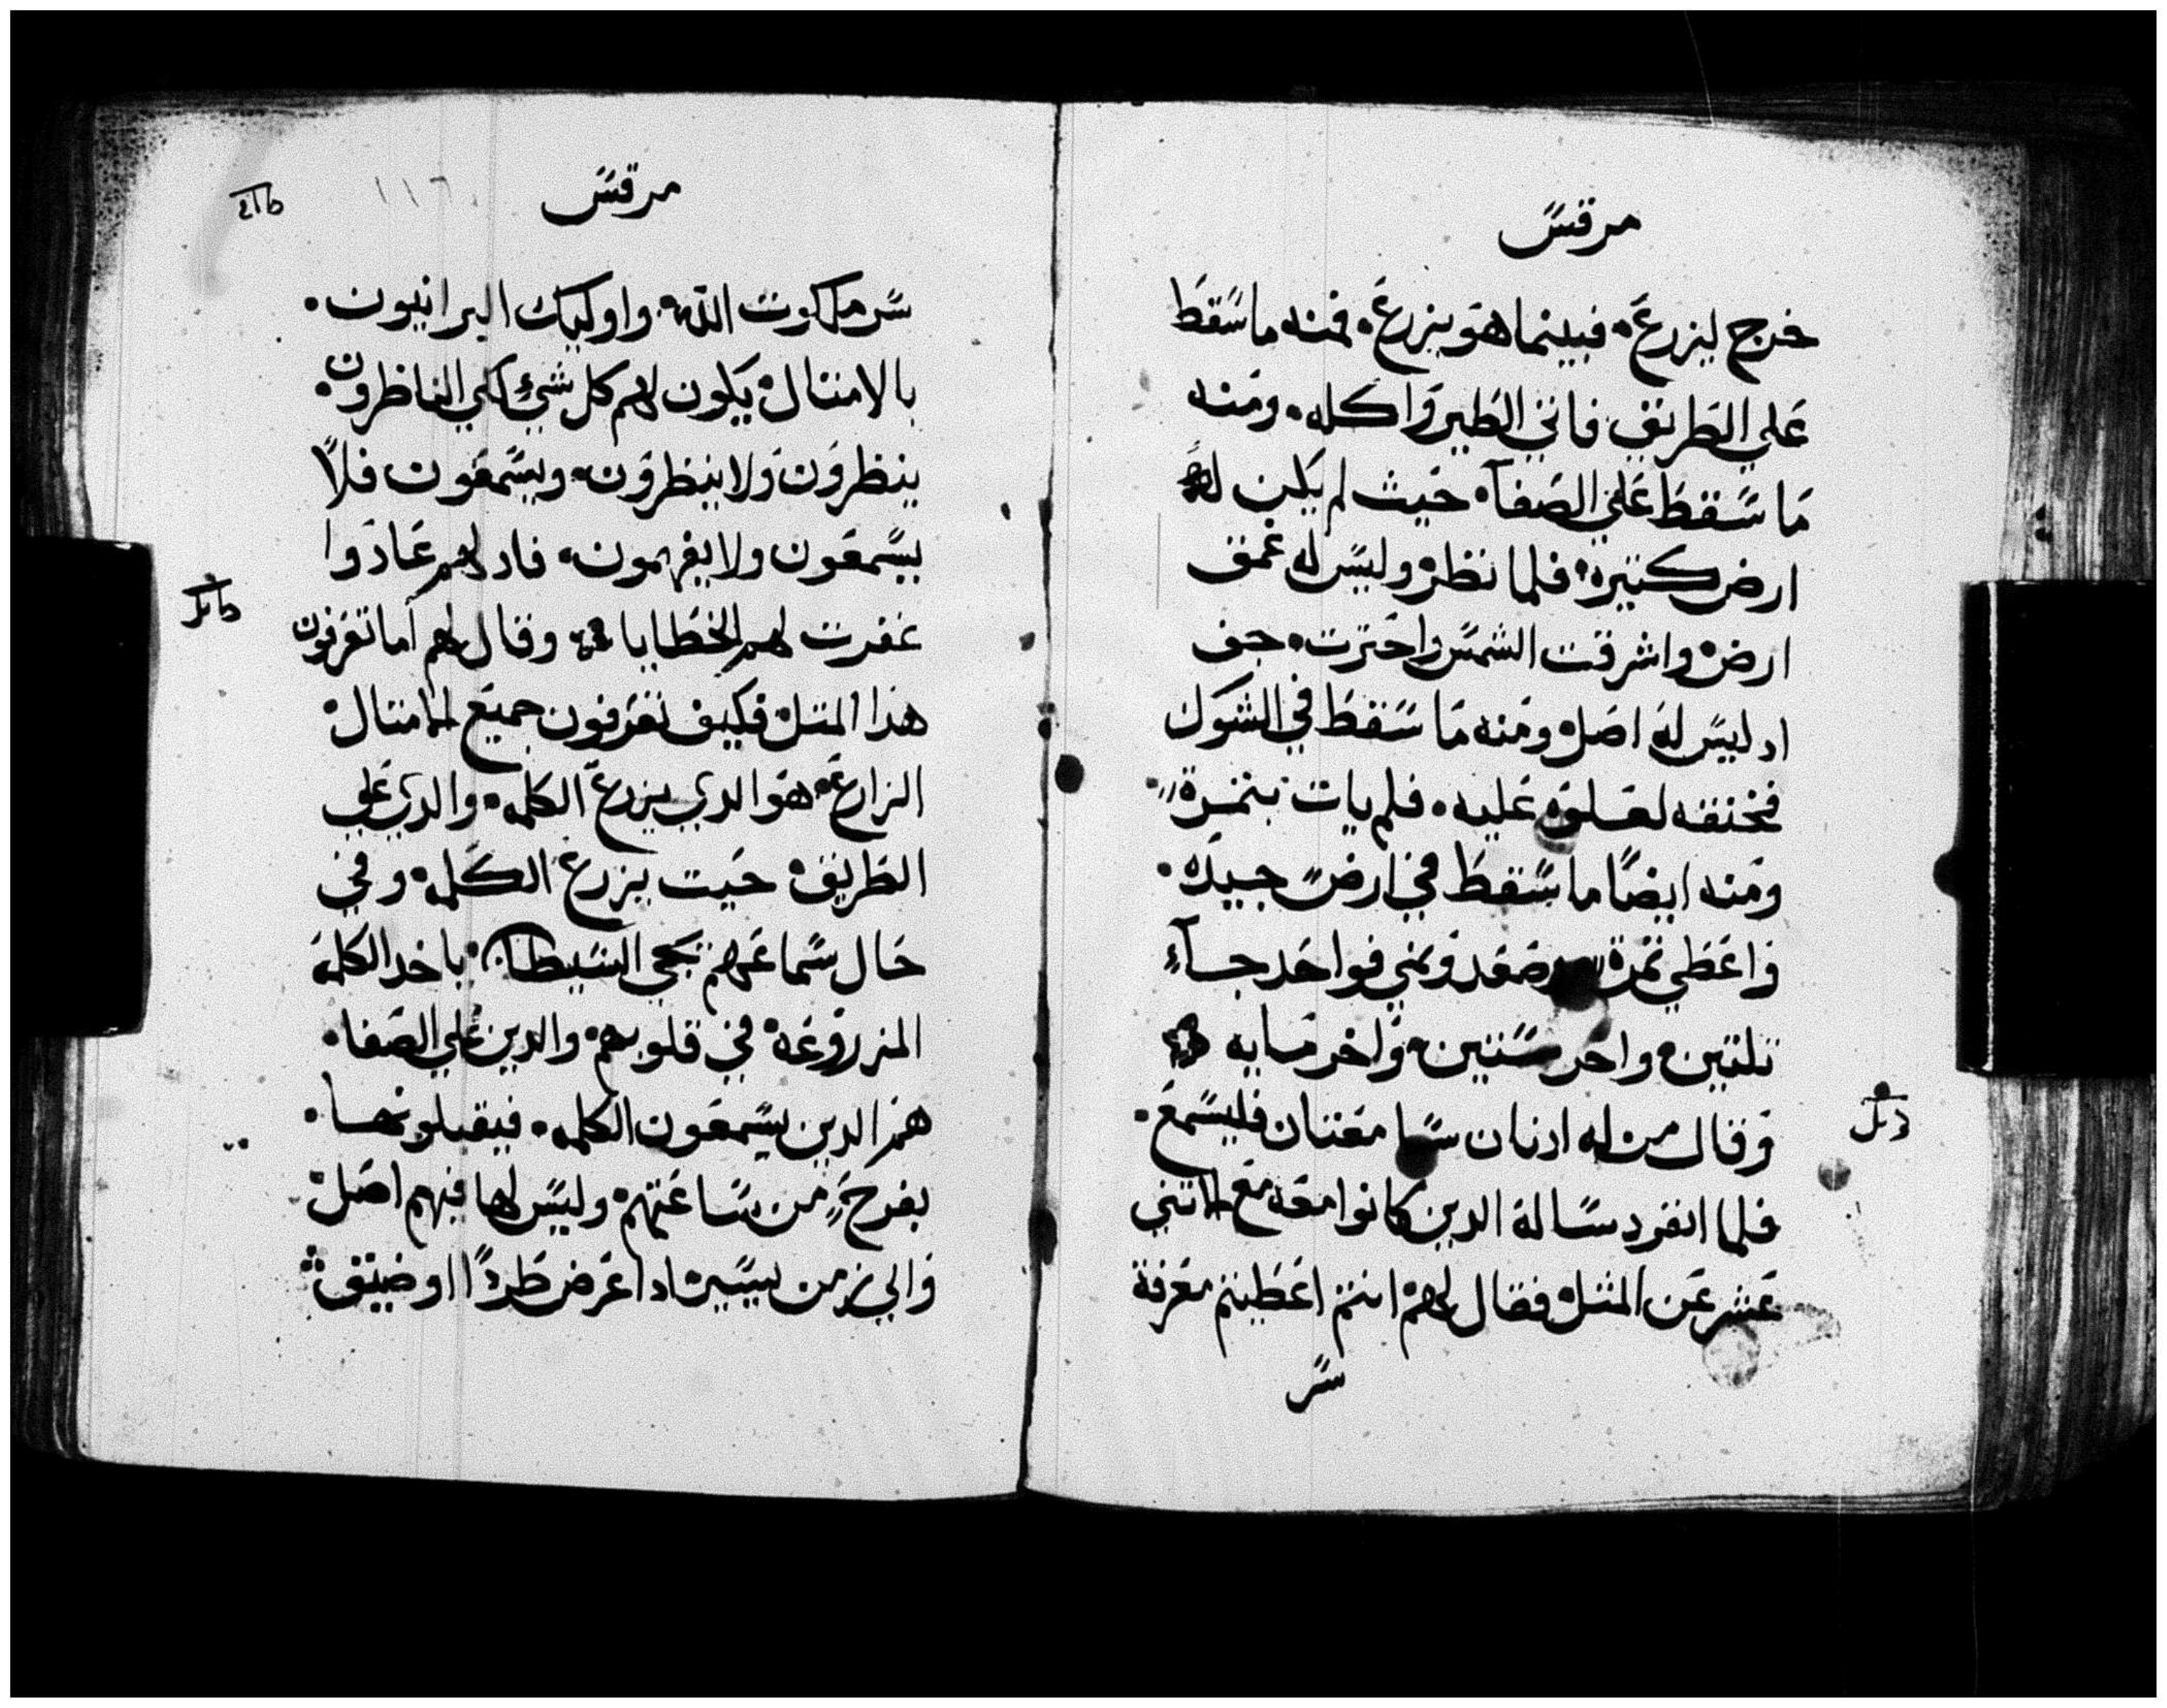 مرقس
خرج ليزرع۰ فبينما هو يزرع۰ فمنه ما سقط
علي الطريق فاتي الطير واكله۰ ومنه
ما سقط علي الصفآ۰ حيث لم يكن له
ارض كتيرة۰ فلما نظر وليس له عمق
ارض واشرقت الشمس واحترت۰ جف
اد ليس له اصل ومنه ما سقط في الشوك
فخنقه لعلوه عليه۰ فلم يات بتمرة
ومنه ايضًا ما سقط في ارض جيدة۰
واعطي تمرة صعد ونمي فواحد جآء
تلتين۰ واخر ستين۰ واخر مايه
وقال من له ادنان سامعتان فليسمع۰
فلما انفرد سالة الدين كانوا معه مع الاتني
عشر عن المثل فقال لهم انتم اعطيتم معرفة
سر
مرقس
١١٦
سر ملكوت الله۰ واوليك البرانيون۰
بالامتال يكون لهم كل شيء لكي الناظرون۰
ينظرون ولا ينظرون۰ ويسمعون فلا
يسمعون ولا يفهمون۰ فاد لهم عادوا
غفرت لهم الخطايا وقال لهم اما تعرفون
هدا المتل فكيف تعرفون جميع الامتال
الزارع۰ هو الدي يزرع الكلمه۰ والدي علي
الطريق حيت يزرع الكلمه۰ وفي
حال سماعهم يجي الشيطان ياخد الكلمة
المزروعة في قلوبهم۰ والدين علي الصفا۰
هم الدين يسمعون الكلمه۰ فيقبلونها۰
بفرح من ساعتهم۰ وليس لها فيهم اصل
والي زمن يسير ادا عرض طردًا او ضيق